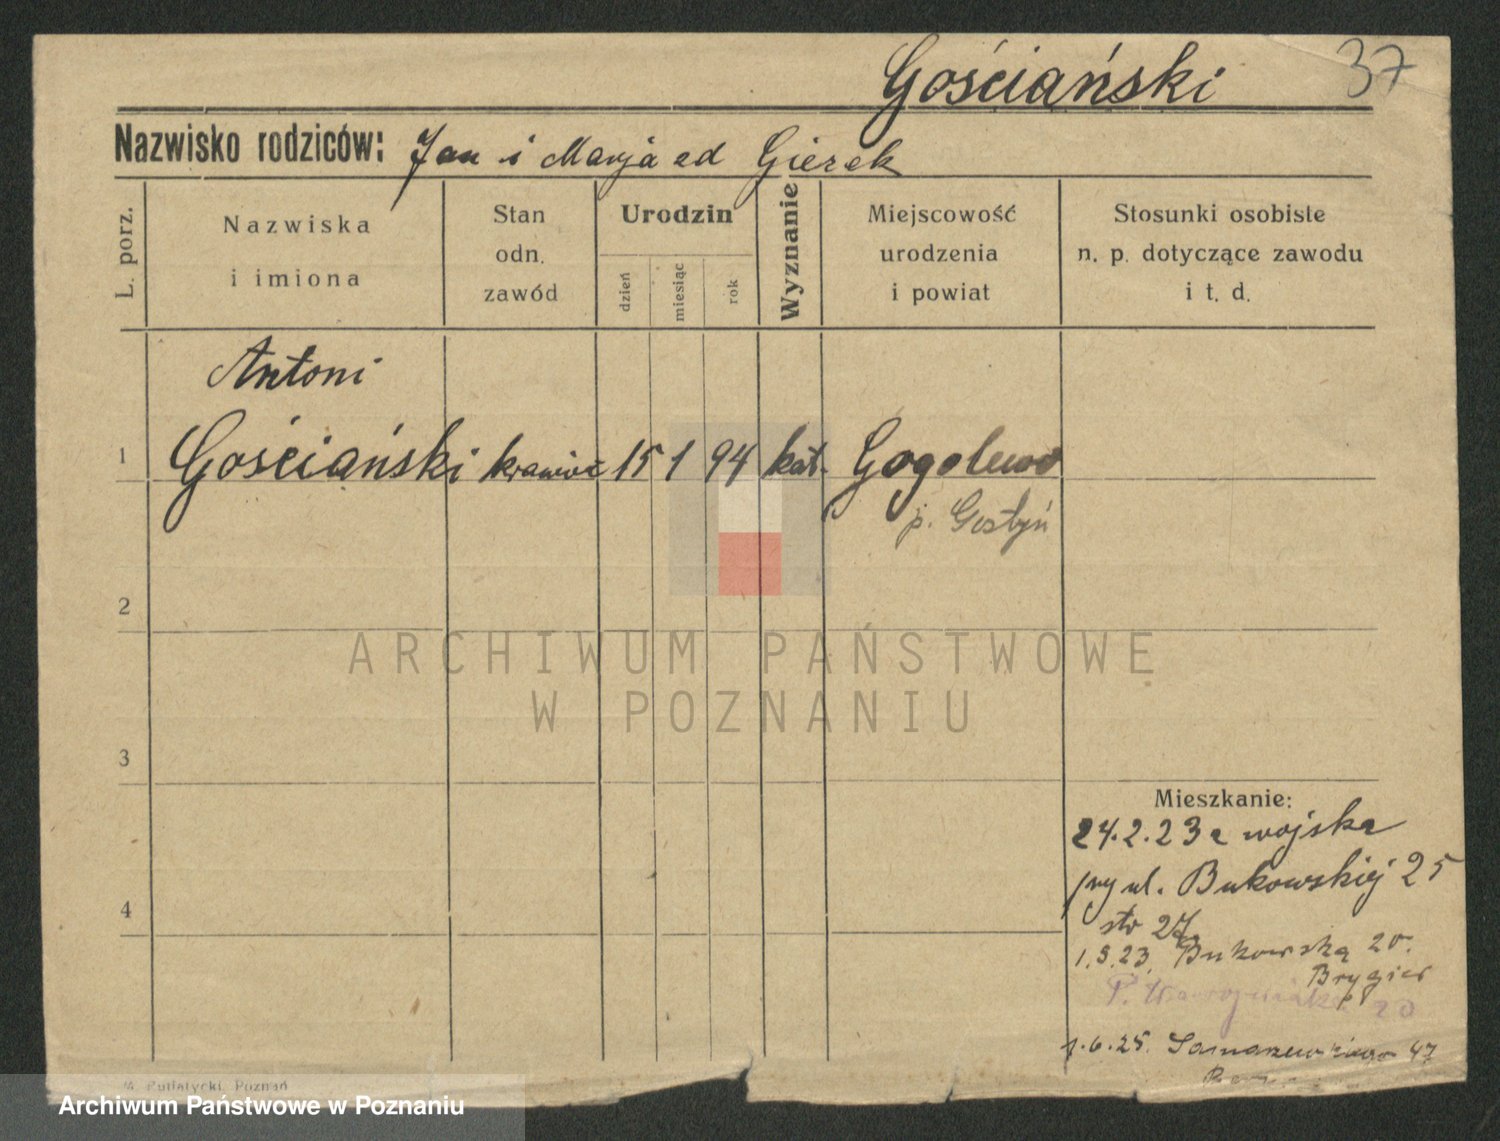 Gościański 37
Nazwisko rodziców: Jan i Marja zd Gierek
L. porz.
Nazwiska
i imiona
Stan
odn.
zawód
Urodzin
dzień
miesiąc
rok
Wyznanie
Miejscowość
urodzenia
i powiat
Stosunki osobiste
n. p. dotyczące zawodu
i t. d.
Antoni
1 Gościański krawiec 15 1 94 kat. Gogolewo
p. Gostyń
2
ARCHIWUM PAŃSTWOWE
W POZNANIU
3
Mieszkanie:
24.2.23 z wojska
przy ul. Bukowskiej 25
4
str 27
1.5.23. Bukowska 20.
Brygier
P. 20
1.6.25. Samarzewskiego 47
M. Putiatycki, Poznań
Archiwum Państwowe w Poznaniu